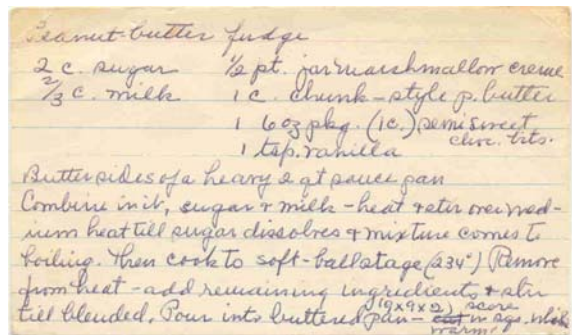 Peanut-butter fudge
2 c. sugar 1/2 pt. jar marshmallow creme
2/3 c. milk 1 c. chunk-style p. butter
1 6 oz pkg. (1c.) semisweet
choc. bits.
1 tsp. vanilla
Butter sides of a heavy 2 qt sauce pan
Combine in it, sugar & milk - heat & stir over med-
ium heat till sugar dissolves & mixture comes to
boiling. Then cook to soft-ball stage (234°) Remove
from heat - add remaining ingredients & stir
till blended. Pour into buttered pan - (9x9x2) score
in sqs. while
warm!